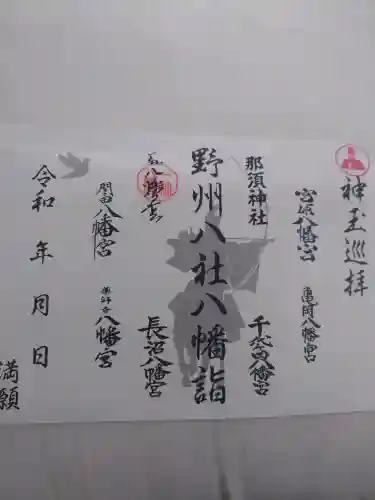 神玉巡拝
宮原八幡宮
亀岡八幡宮
那須神社
千代田八幡宮
野州八社八幡詣
八幡宮
長沼八幡宮
間々田八幡宮
薬師寺八幡宮
令和 年 月 日
満願